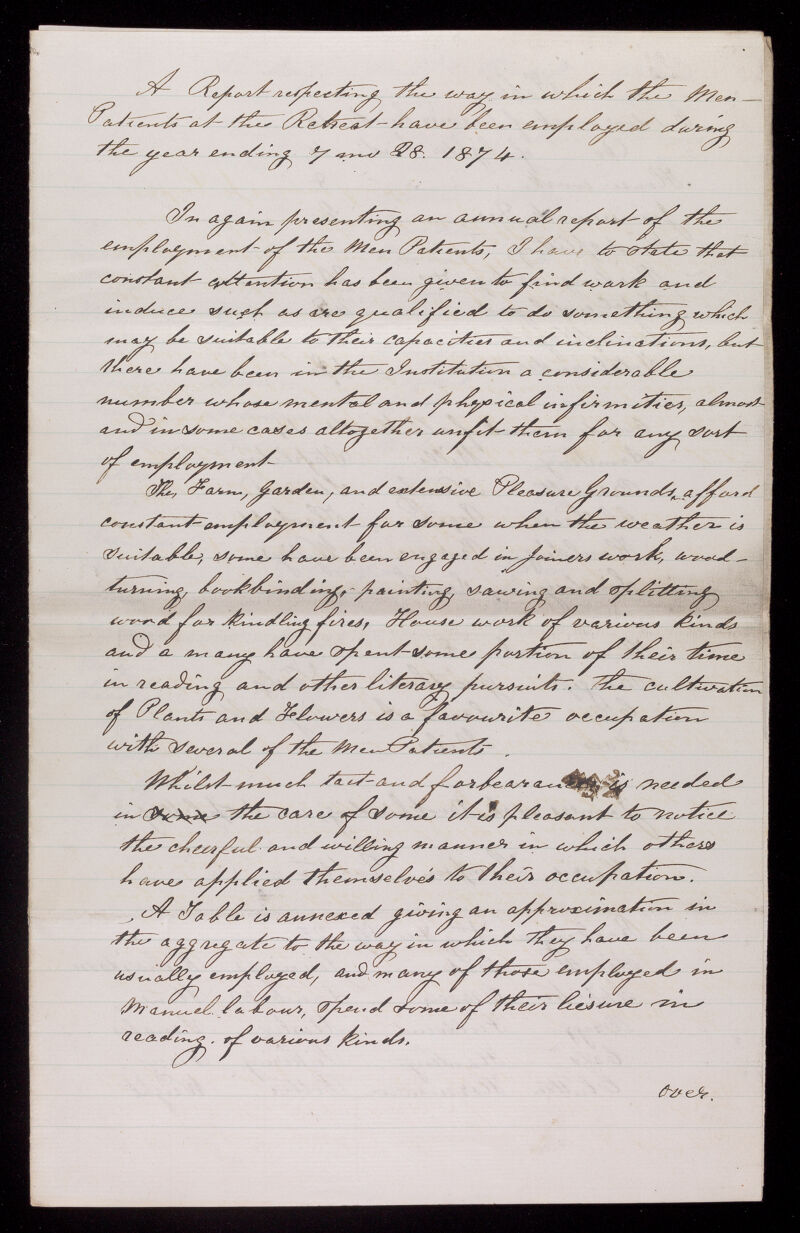 A Report respecting the way in which the Men-
Patients at the Retreat have been employed during
the year ending 7 mo 28. 1874.
In again presenting an annual report of the
employment of the Men Patients, I have to state that
constant attention has been given to find work and
induce such as are qualified to do something which
may be suitable to their capacities and inclinations, but
there have been in the Institution a considerable
number whose mental and physical infirmities, almost
and in some cases altogether unfit them for any sort
of employment
The Farm, Garden, and extensive Pleasure Grounds, afford
constant employment for some when the weather is
suitable, some have been engaged in Joiners work, wood-
turning, bookbinding, painting, sawing and splitting
wood for kindling fires, House work of various kinds
and a many have spent some portion of their time
in reading and other literary pursuits. The cultivation
of Plants and Flowers is a favourite occupation
with several of the Men Patients.
Whilst much tact and forbearance is needed
in some the care of some it is pleasant to notice
the cheerful and willing manner in which others
have applied themselves to their occupation.
A Table is annexed giving an approximation in
the aggregate to the way in which they have been
usually employed, and many of those employed in
Manuel labour, spend some of their liesure in
reading. of various kinds.
over.